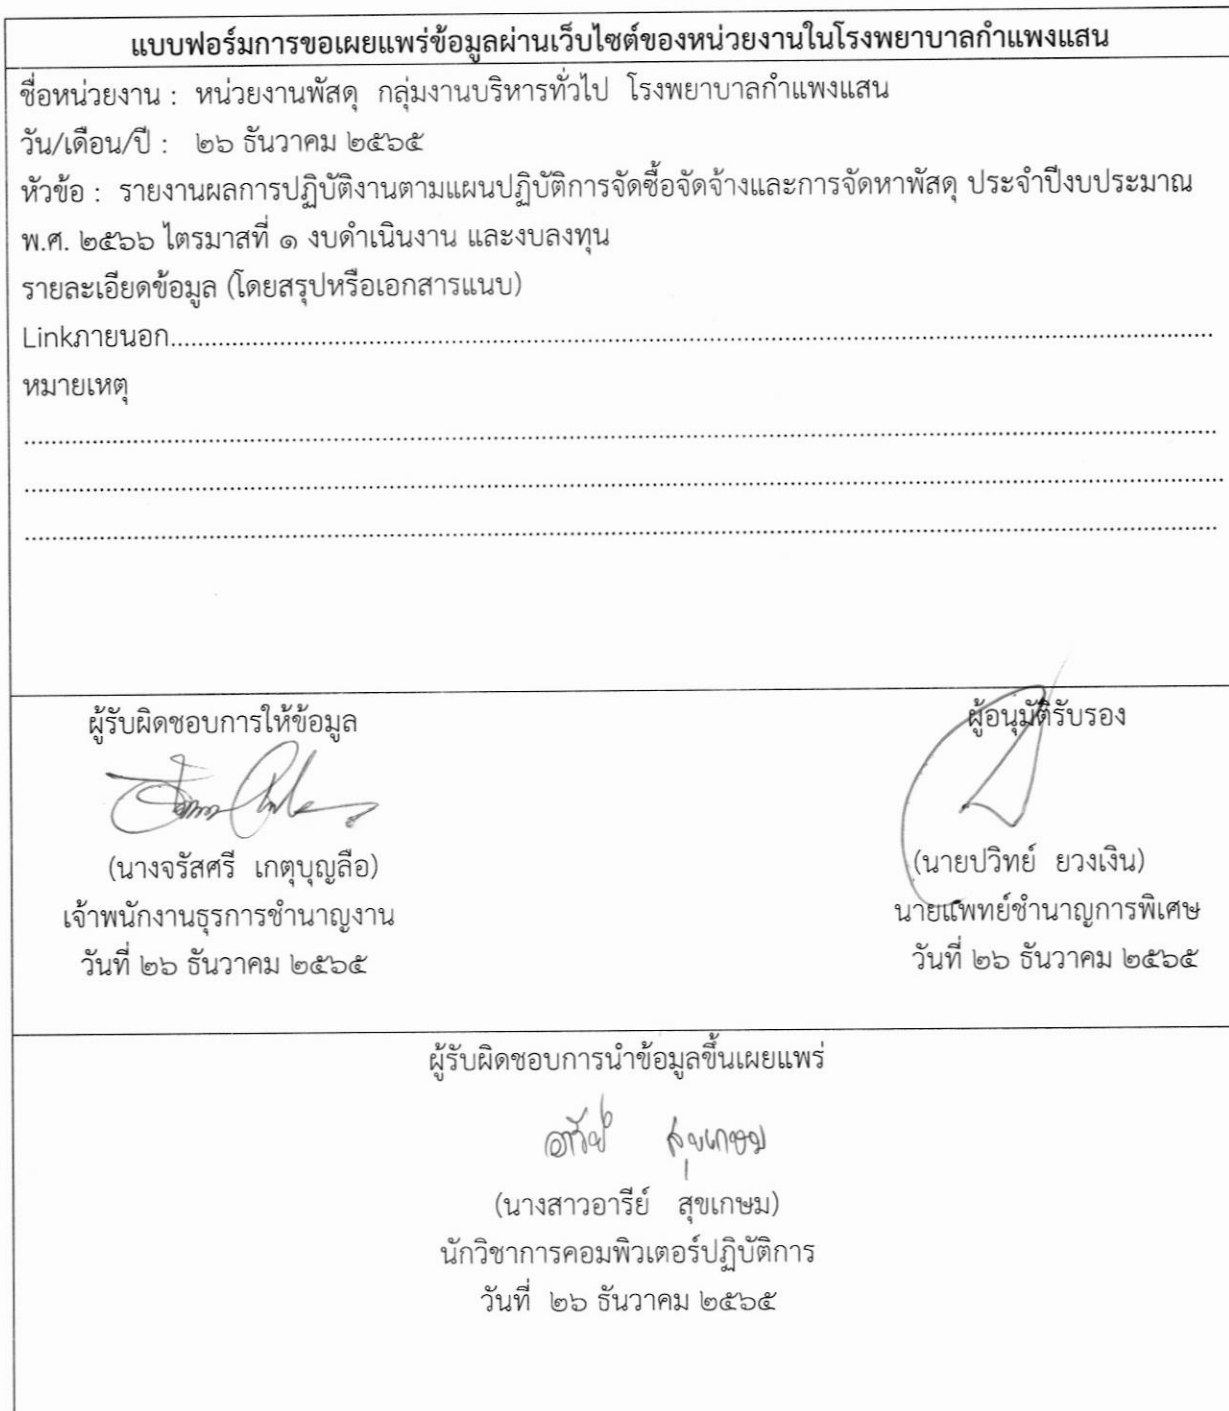 แบบฟอร์มการขอเผยแพร่ข้อมูลผ่านเว็บไซต์ของหน่วยงานในโรงพยาบาลกำแพงแสน
ชื่อหน่วยงาน : หน่วยงานพัสดุ กลุ่มงานบริหารทั่วไป โรงพยาบาลกำแพงแสน
วัน/เดือน/ปี : ๒๖ ธันวาคม ๒๕๖๕
หัวข้อ : รายงานผลการปฏิบัติงานตามแผนปฏิบัติการจัดซื้อจัดจ้างและการจัดหาพัสดุ ประจำปีงบประมาณ
พ.ศ. ๒๕๖๖ ไตรมาสที่ ๑ งบดำเนินงาน และงบลงทุน
รายละเอียดข้อมูล (โดยสรุปหรือเอกสารแนบ)
Linkภายนอก..........................................................................................
หมายเหตุ
..........................................................................................
..........................................................................................
..........................................................................................
ผู้รับผิดชอบการให้ข้อมูล
(นางจรัสศรี เกตุบุญลือ)
เจ้าพนักงานธุรการชำนาญงาน
วันที่ ๒๖ ธันวาคม ๒๕๖๕
ผู้อนุมัติรับรอง
(นายปวิทย์ ยวงเงิน)
นายแพทย์ชำนาญการพิเศษ
วันที่ ๒๖ ธันวาคม ๒๕๖๕
ผู้รับผิดชอบการนำข้อมูลขึ้นเผยแพร่
อารีย์ สุขเกษม
(นางสาวอารีย์ สุขเกษม)
นักวิชาการคอมพิวเตอร์ปฏิบัติการ
วันที่ ๒๖ ธันวาคม ๒๕๖๕